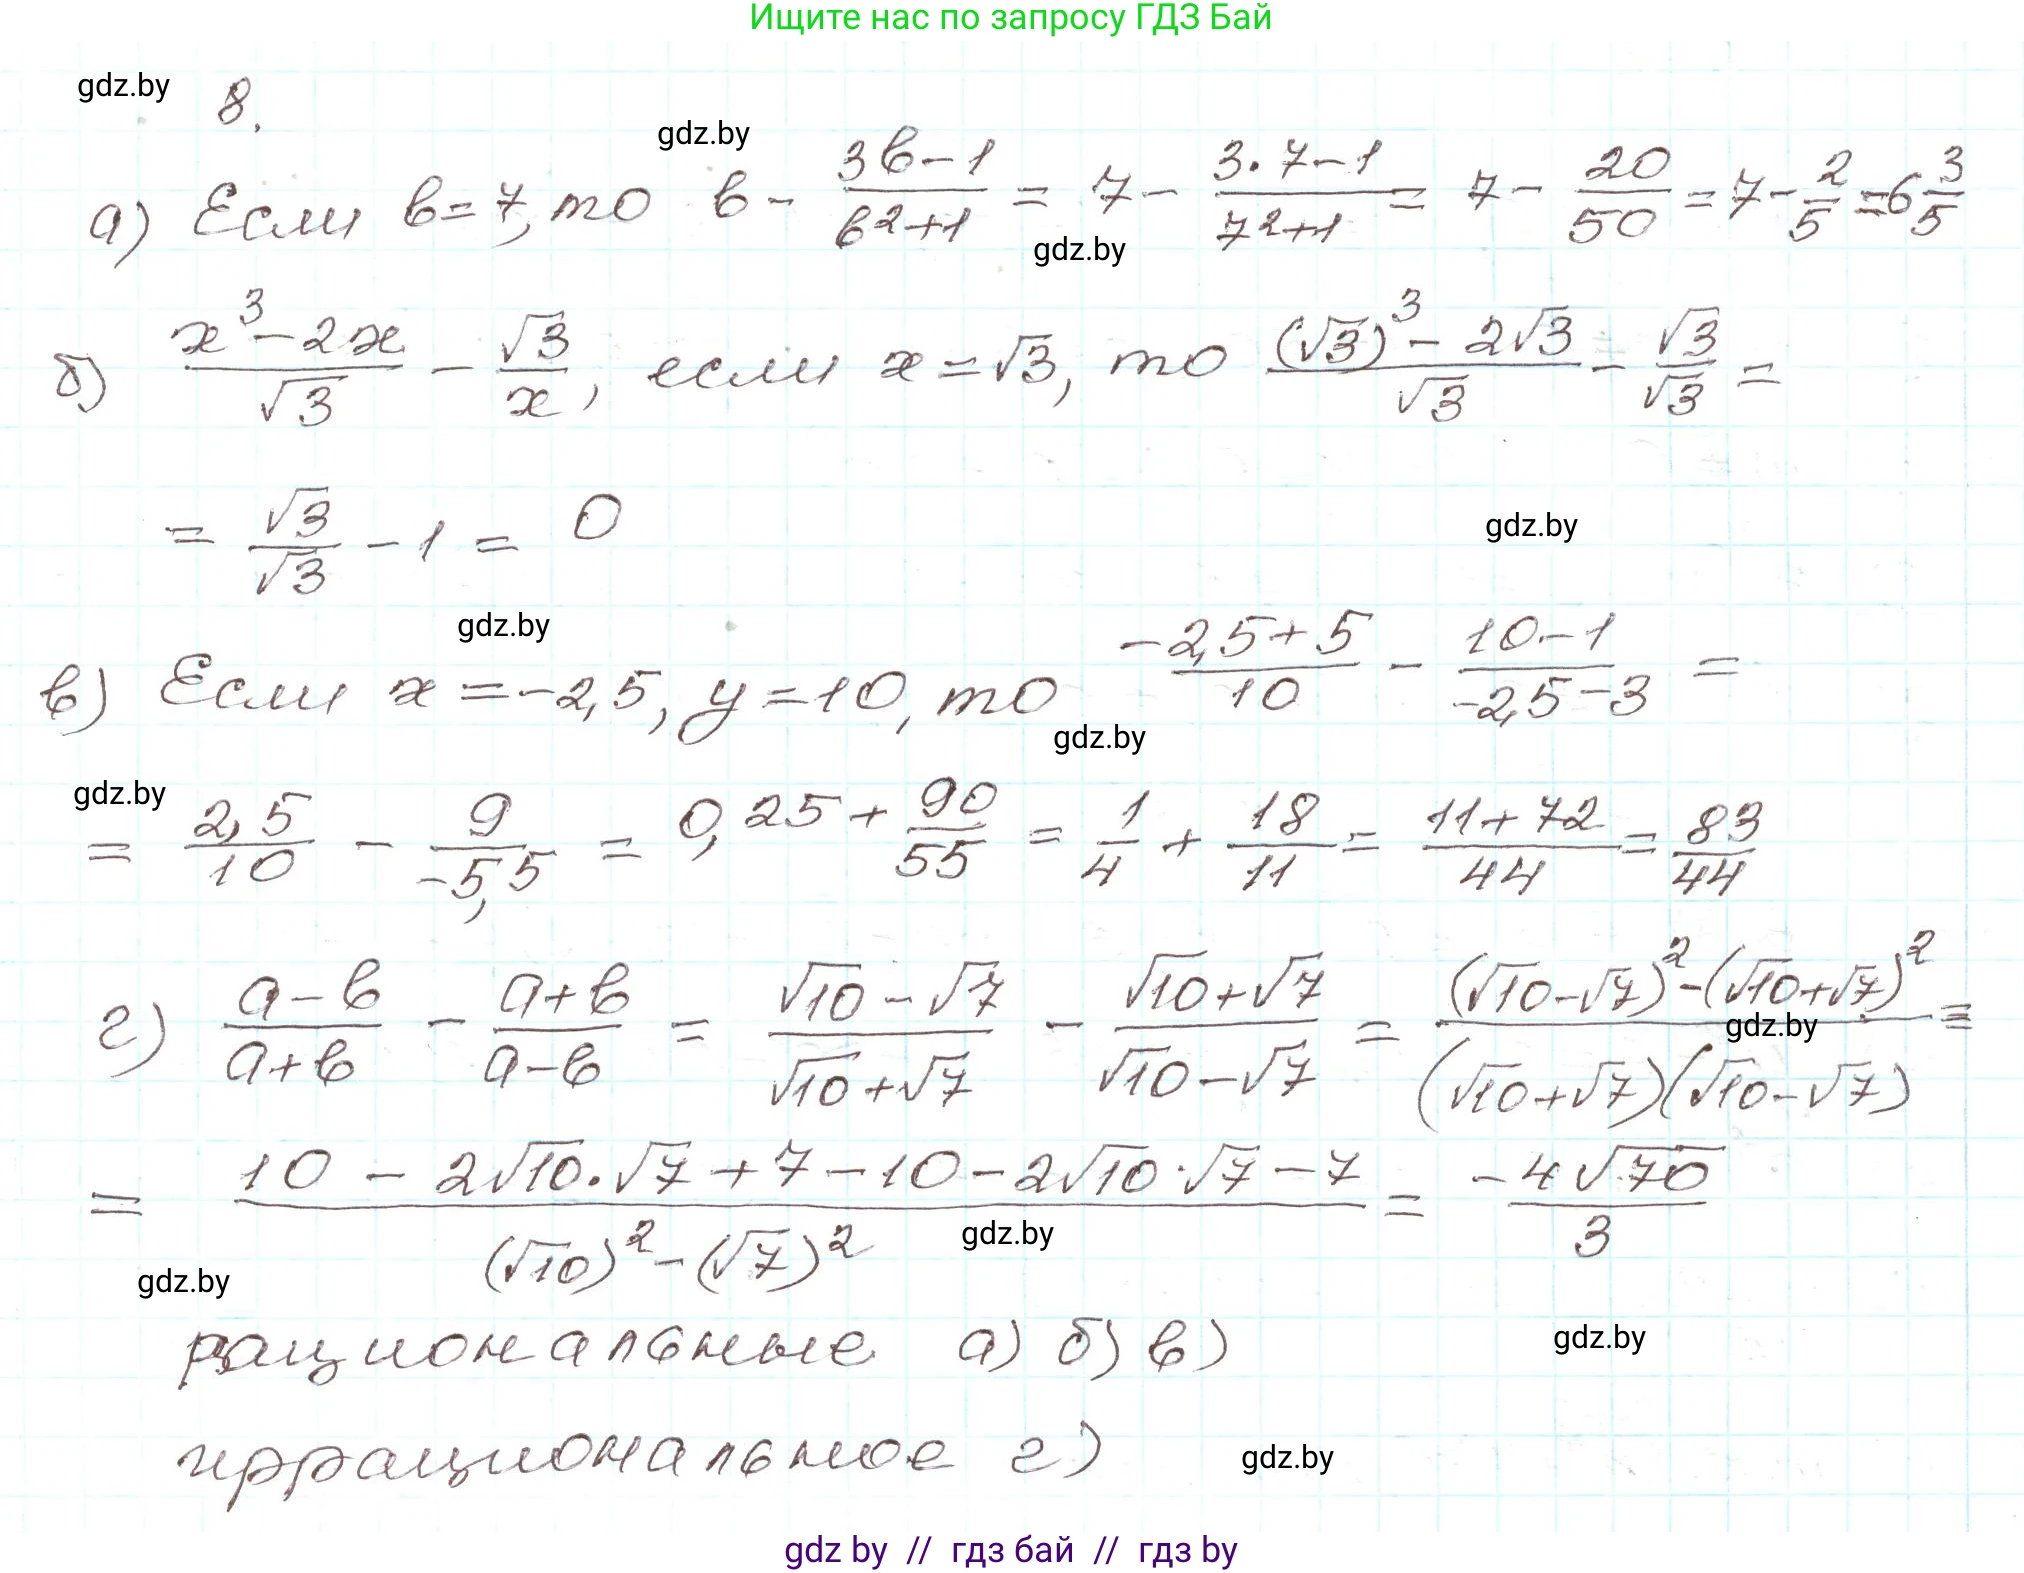 Ищите нас по запросу ГДЗ Бай
gdz.by
8.
gdz.by
а) Если в=7, то в - (3в-1)/(в²+1) = 7 - (3·7-1)/(7²+1) = 7 - 20/50 = 7 - 2/5 = 6 3/5
gdz.by
б) (x³-2x)/√3 - √3/x, если x=√3, то ((√3)³-2√3)/√3 - √3/√3 =
= √3/√3 - 1 = 0
gdz.by
gdz.by
в) Если x=-2,5, y=10, то (-2,5+5)/10 - (10-1)/(-2,5-3) =
gdz.by
gdz.by
= 2,5/10 - 9/(-5,5) = 0,25 + 90/55 = 1/4 + 18/11 = (11+72)/44 = 83/44
г) (а-в)/(а+в) - (а+в)/(а-в) = (√10-√7)/(√10+√7) - (√10+√7)/(√10-√7) = ((√10-√7)²-(√10+√7)²)/((√10+√7)(√10-√7)) =
gdz.by
= (10-2√10·√7+7-10-2√10·√7-7)/((√10)²-(√7)²) = -4√70/3
gdz.by
gdz.by
рациональные а) б) в)
gdz.by
иррациональное г)
gdz.by
gdz by // гдз бай // гдз by